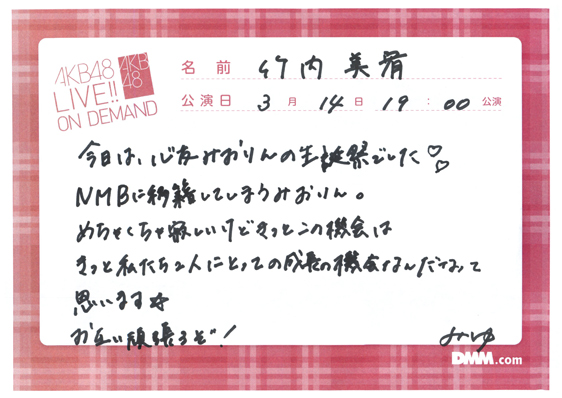 AKB48
LIVE!!
ON DEMAND
AKB
48
名前 竹内美宥
公演日 3月14日19:00公演
今日は、心友みおりんの生誕祭でした♡♡
NMBに移籍してしまうみおりん。
めちゃくちゃ寂しいけどきっとこの機会は
きっと私たち2人にとっての成長の機会なんだなって
思います☆
お互い頑張るぞ!
みゆ
DMM.com